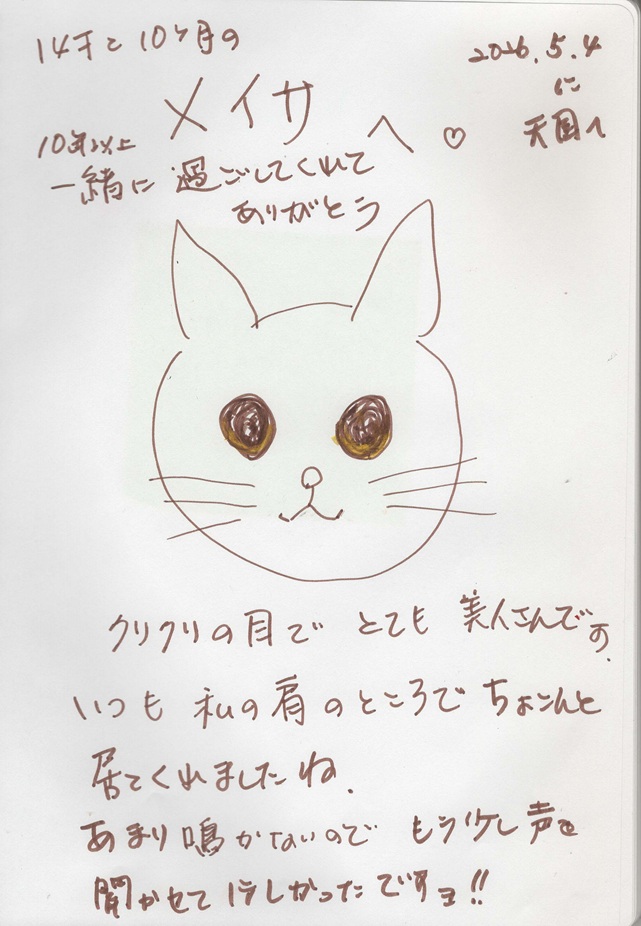 14才と10ヶ月の
メイサへ♡
2026.5.4
に
天国へ
10年以上
一緒に過ごしてくれて
ありがとう
クリクリの目でとても美人さんです。
いつも私の肩のところでちょこんと
居てくれましたね.
あまり鳴かないのでもう少し声を
聞かせて欲しかったですヨ!!